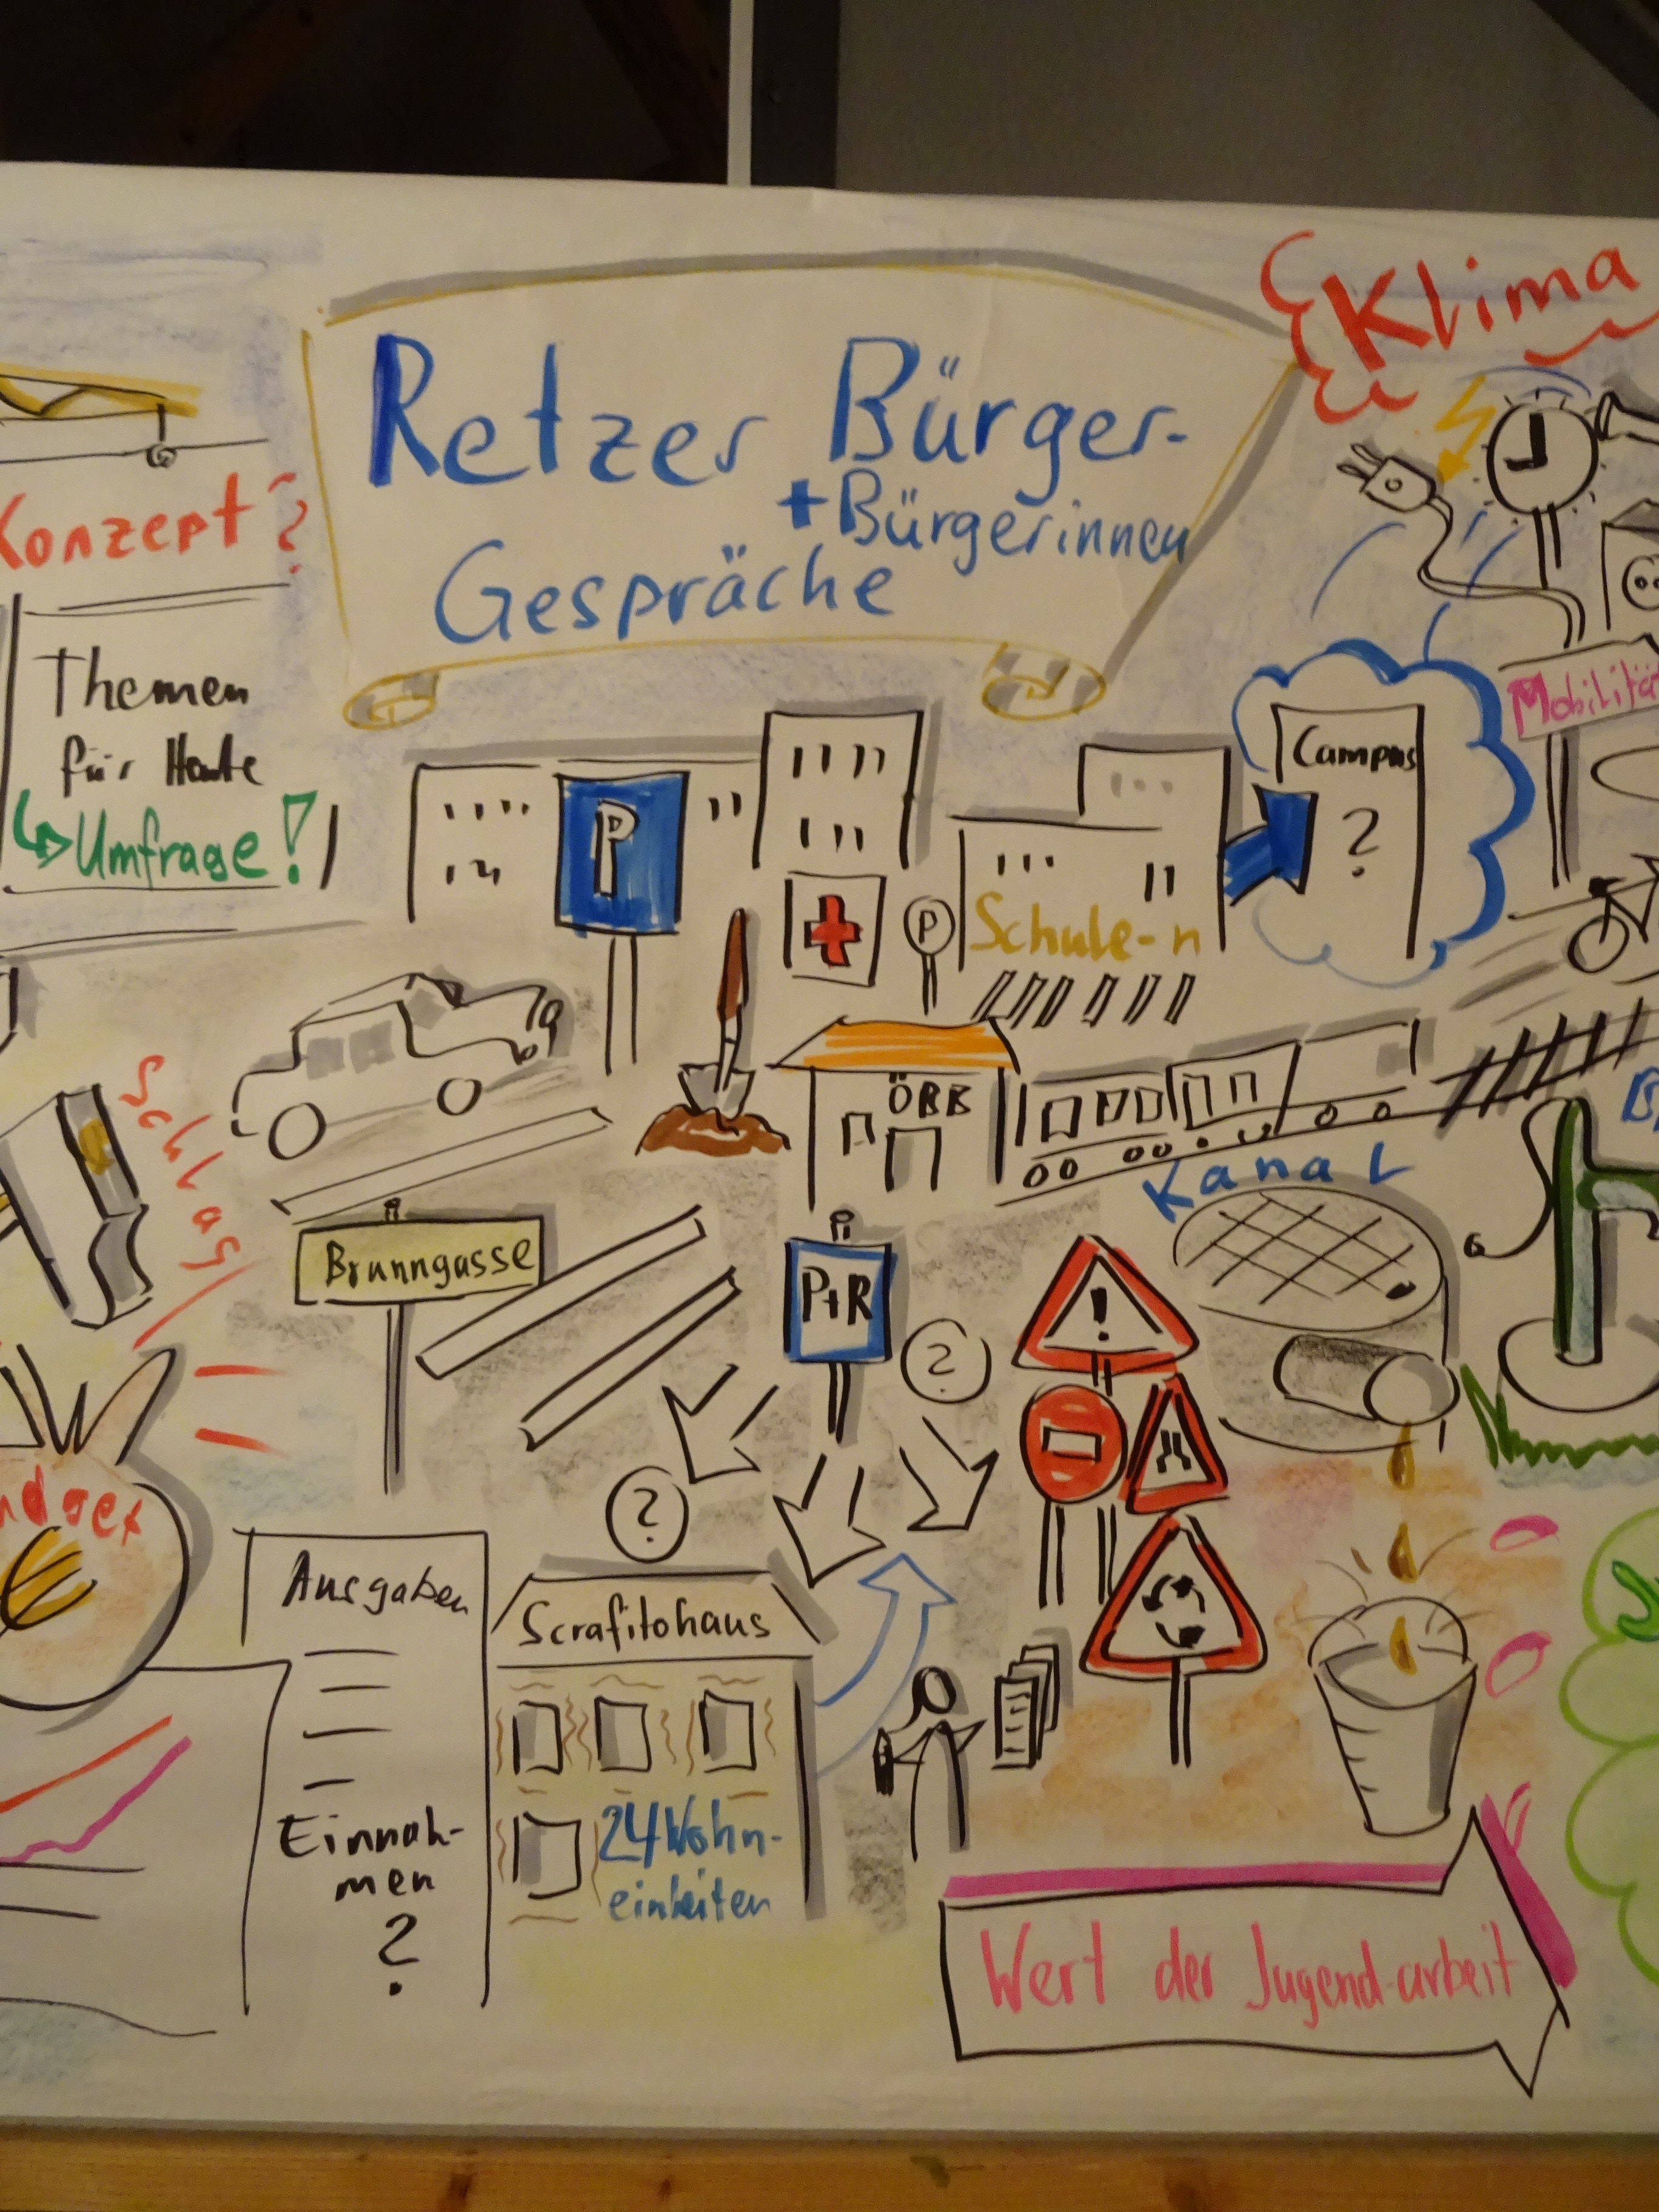 Klima
Retzer Bürger-
+Bürgerinnen
Gespräche
Konzept?
Themen
für Heute
Umfrage!
Mobilität
Campus
?
P
P
Schule-n
ÖBB
Schlag
Kanal
Brunngasse
P+R
?
!
?
€
Ausgaben
Einnah-
men
?
Scrafitohaus
24 Wohn-
einheiten
Wert der Jugend-arbeit